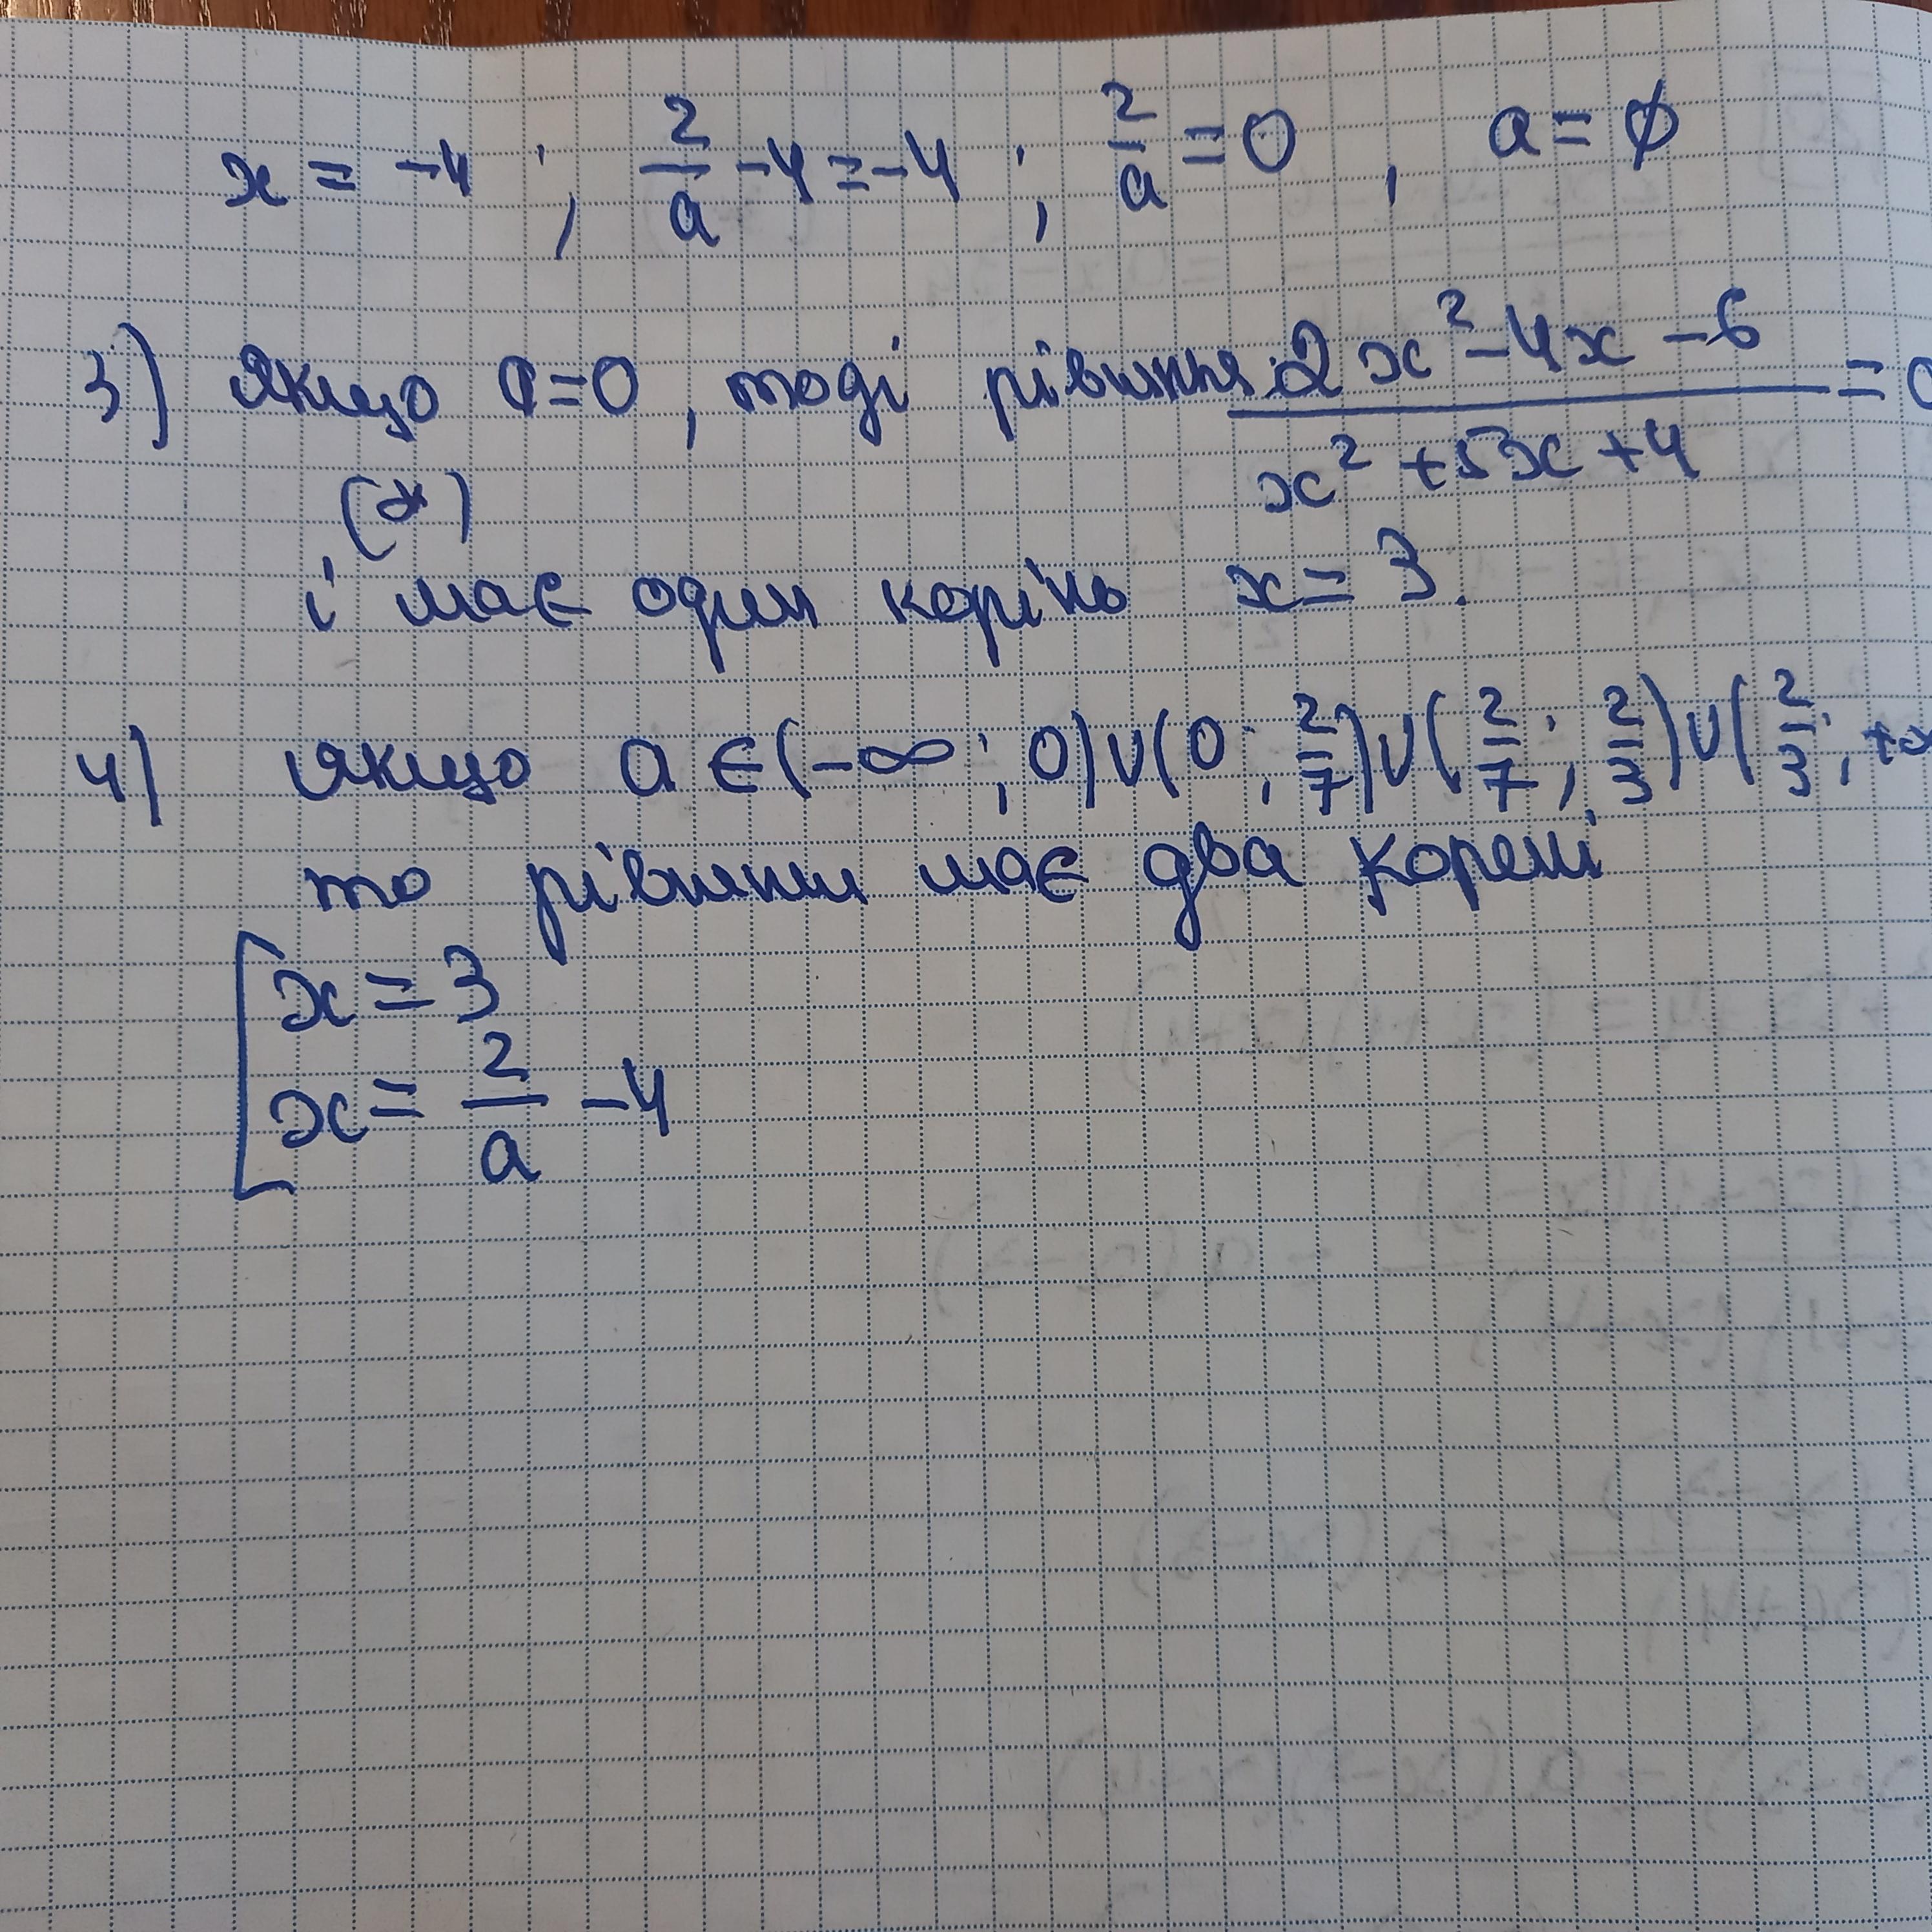 x = -4 ; 2/a - 4 = -4 ; 2/a = 0 , a = ∅
3) Якщо a=0, тоді рівняння 2x² - 4x - 6 / x² + 5x + 4 = 0
(*)
і має один корінь x = 3.
4) Якщо a ∈ (-∞; 0) ∪ (0; 2/7) ∪ (2/7; 2/3) ∪ (2/3; +∞
то рівняння має два корені
[ x = 3
x = 2/a - 4